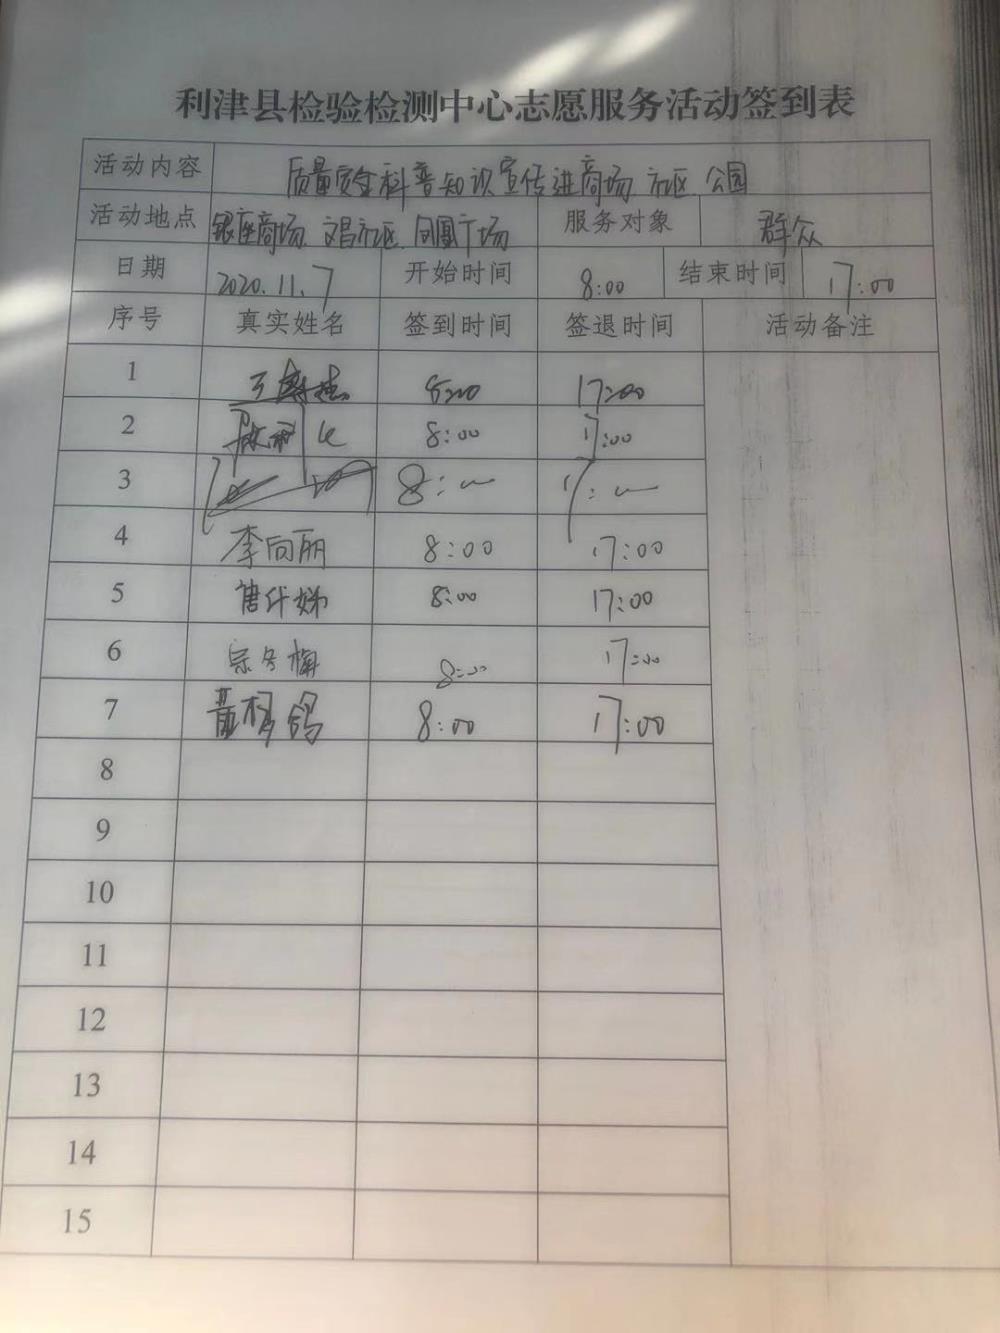 利津县检验检测中心志愿服务活动签到表
活动内容 质量安全科普知识宣传进商场 社区 公园
活动地点 银座商场 文昌社区 凤凰广场 服务对象 群众
日期 2020.11.7 开始时间 8:00 结束时间 17:00
序号 真实姓名 签到时间 签退时间 活动备注
1 8:00 17:00
2 8:00 17:00
3 8: 17:
4 李向丽 8:00 17:00
5 8:00 17:00
6 8:00 17:00
7 8:00 17:00
8
9
10
11
12
13
14
15